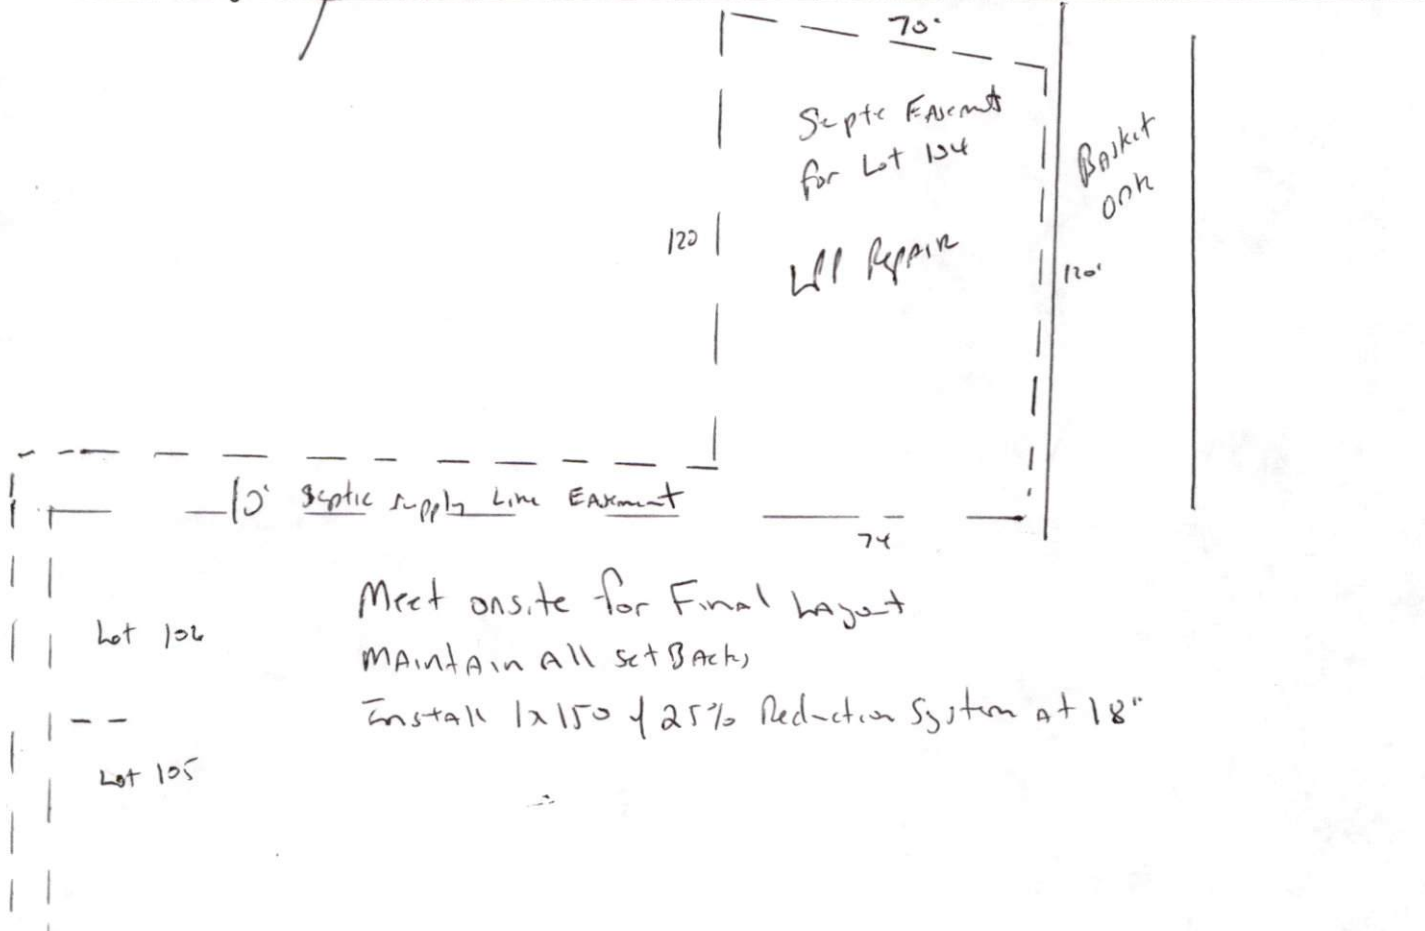 70'
Septic Easement
for Lot 104
Basket
oak
120
Repair
120'
10' Septic Supply Line Easement
74
Meet onsite for Final Layout
Lot 106
Maintain All SetBacks
Install 1x150 of 25% Reduction System At 18"
Lot 105